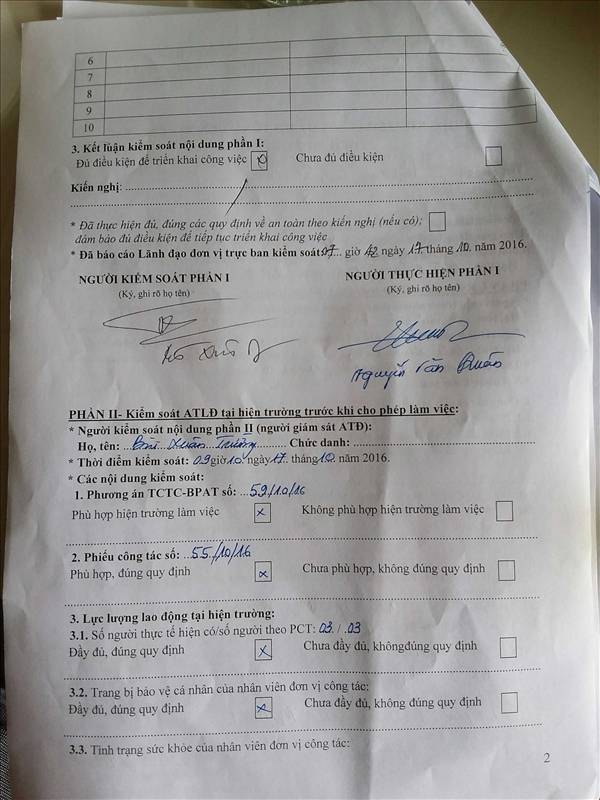 6
7
8
9
10
3. Kết luận kiểm soát nội dung phần I:
Đủ điều kiện để triển khai công việc x Chưa đủ điều kiện
Kiến nghị:
* Đã thực hiện đủ, đúng các quy định về an toàn theo kiến nghị (nếu có);
đảm bảo đủ điều kiện để tiếp tục triển khai công việc
* Đã báo cáo Lãnh đạo đơn vị trực ban kiểm soát: 07 giờ 42 ngày 17 tháng 10 năm 2016.
NGƯỜI KIỂM SOÁT PHẦN I NGƯỜI THỰC HIỆN PHẦN I
(Ký, ghi rõ họ tên) (Ký, ghi rõ họ tên)
Nguyễn Văn Quán
PHẦN II- Kiểm soát ATLĐ tại hiện trường trước khi cho phép làm việc:
* Người kiểm soát nội dung phần II (người giám sát ATĐ):
Họ, tên: Bùi Xuân Trường Chức danh:
* Thời điểm kiểm soát: 09 giờ 10 ngày 17 tháng 10 năm 2016.
* Các nội dung kiểm soát:
1. Phương án TCTC-BPAT số: 59/10/16
Phù hợp hiện trường làm việc x Không phù hợp hiện trường làm việc
2. Phiếu công tác số: 55/10/16
Phù hợp, đúng quy định x Chưa phù hợp, không đúng quy định
3. Lực lượng lao động tại hiện trường:
3.1. Số người thực tế hiện có/số người theo PCT: 03 / 03
Đầy đủ, đúng quy định x Chưa đầy đủ, khôngđúng quy định
3.2. Trang bị bảo vệ cá nhân của nhân viên đơn vị công tác:
Đầy đủ, đúng quy định x Chưa đầy đủ, không đúng quy định
3.3. Tình trạng sức khỏe của nhân viên đơn vị công tác:
2